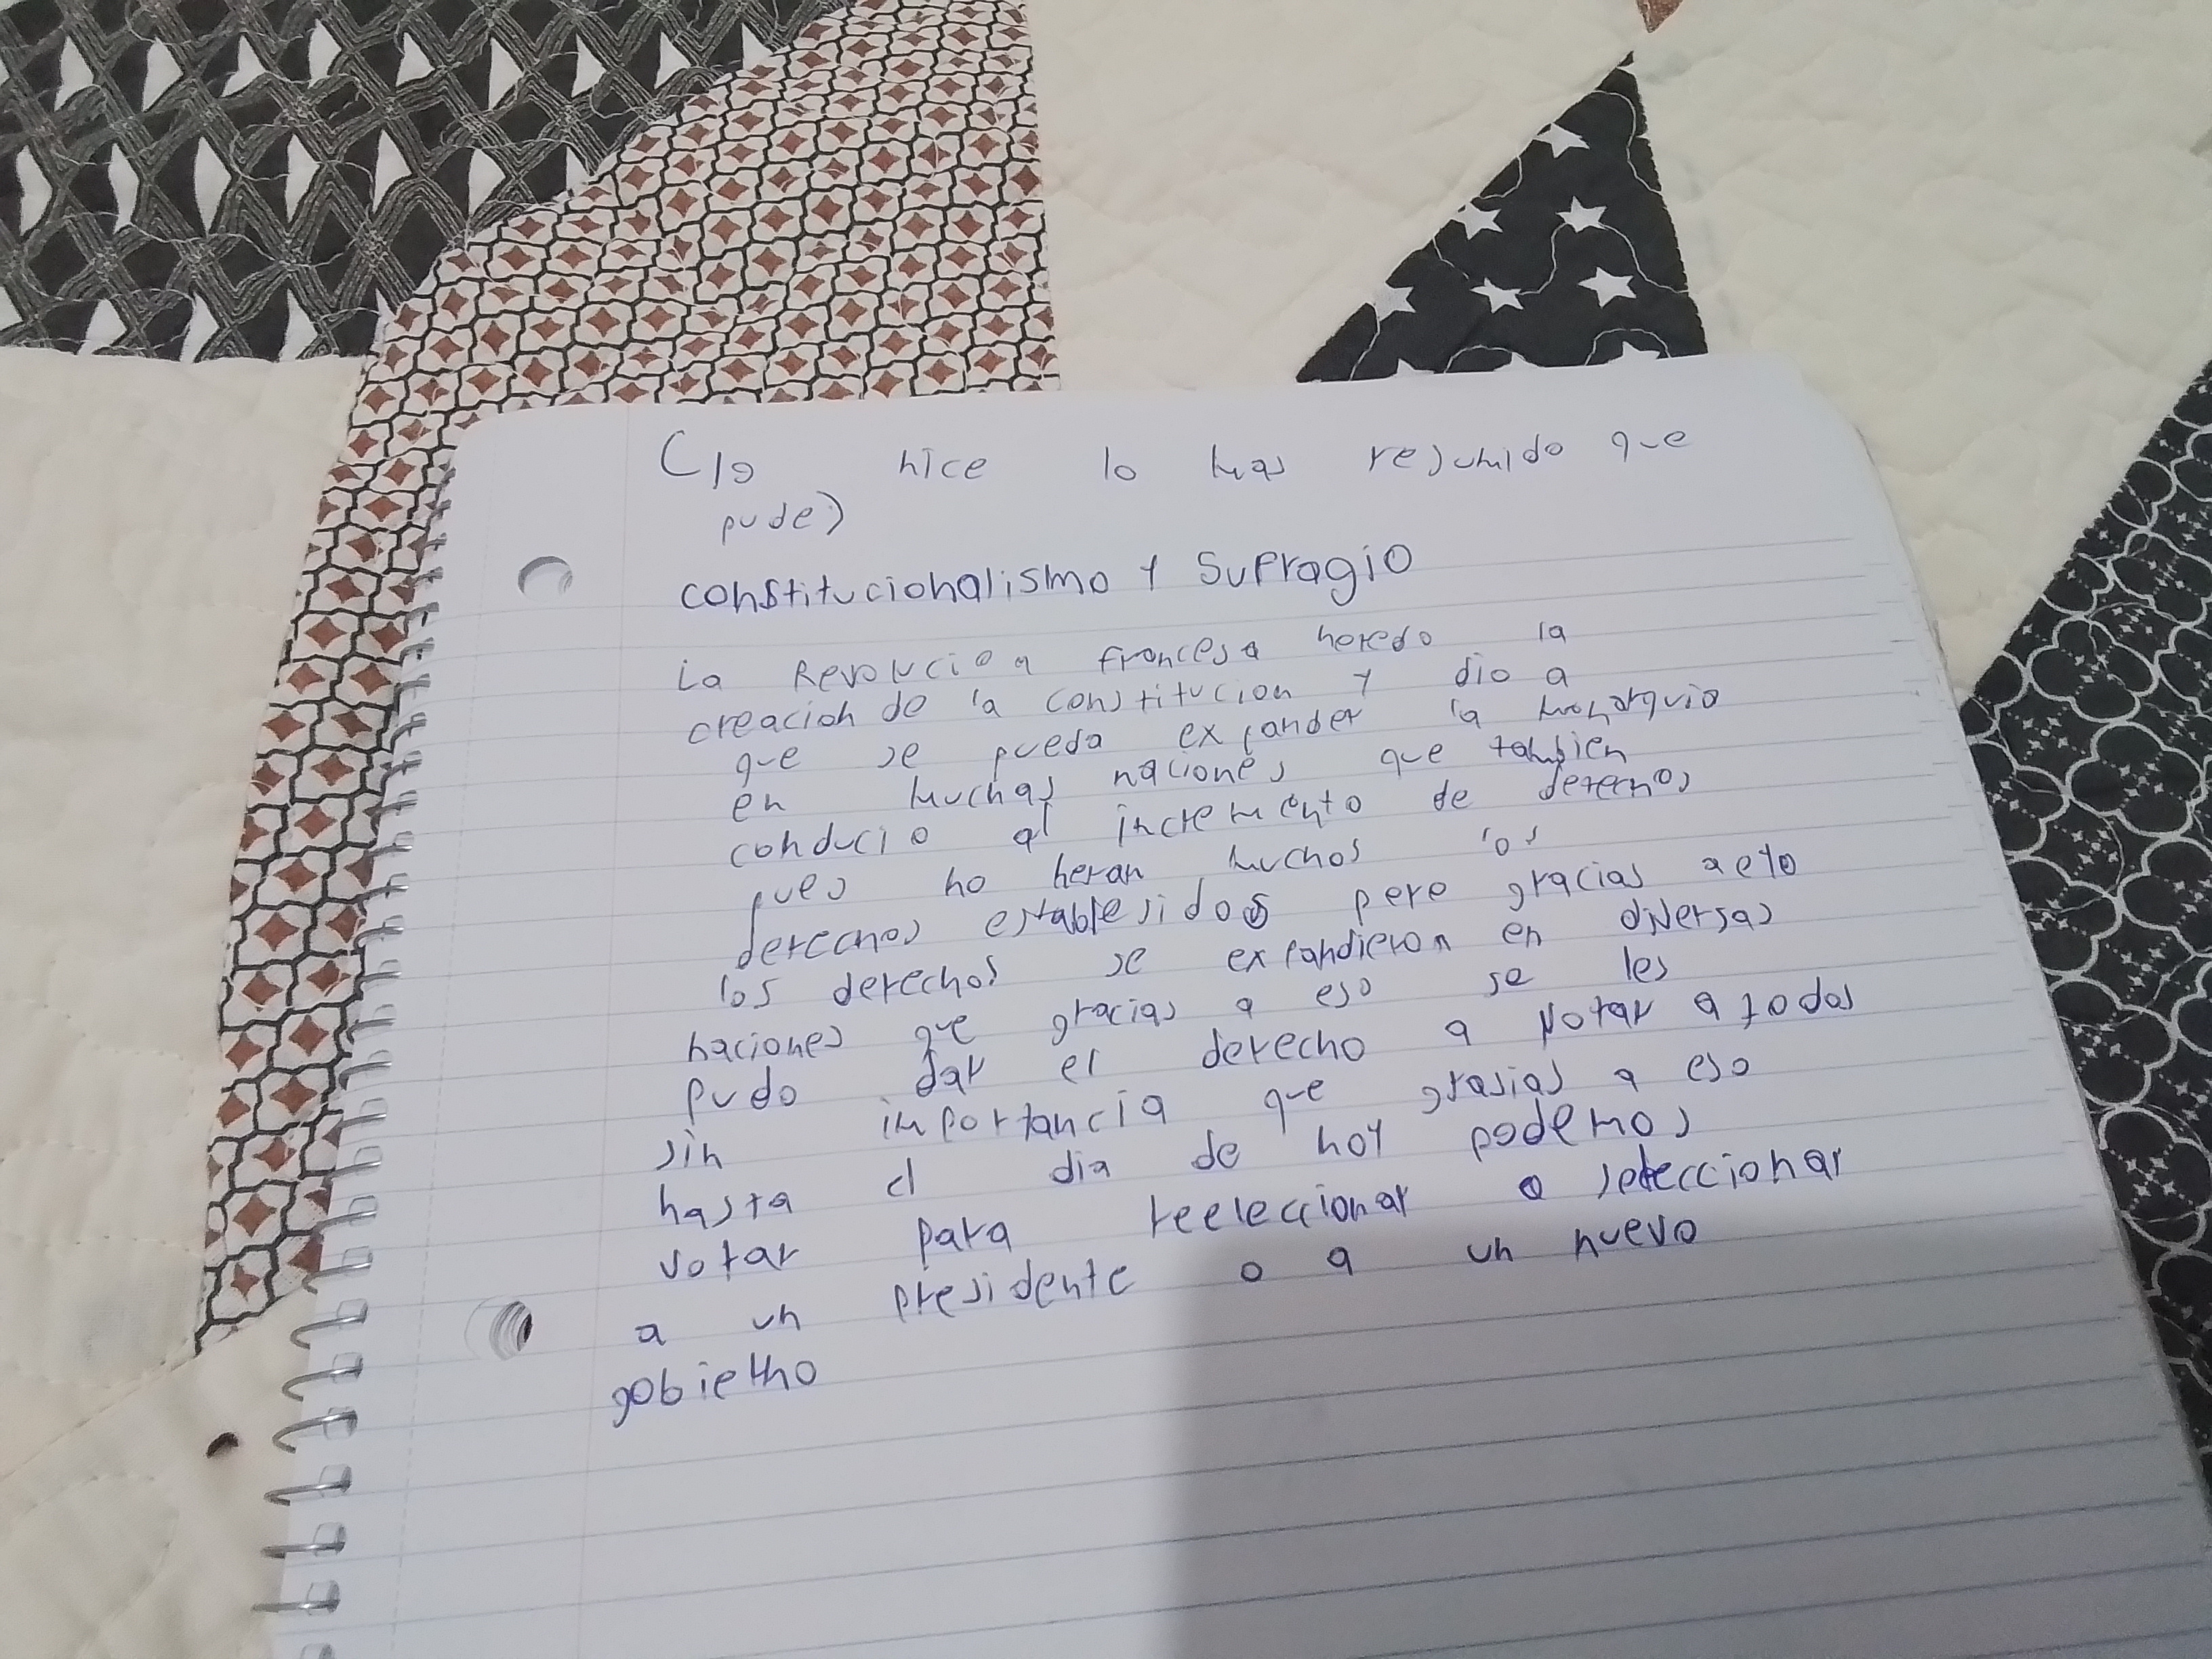 (lo hice lo mas resumido que
pude)
constitucionalismo y Sufragio
La Revolucion francesa heredo la
creacion de la constitucion y dio a
que se pueda expander la monarquia
en muchas naciones que tambien
conducio al incremento de derechos
pues no heran muchos los
derechos establesidos pero gracias a eto
los derechos se expandieron en diversas
naciones que gracias a eso se les
pudo dar el derecho a votar a todas
sin importancia que grasias a eso
hasta el dia de hoy podemos
votar para reeleccionar o seleccionar
a un presidente o a un nuevo
gobierno